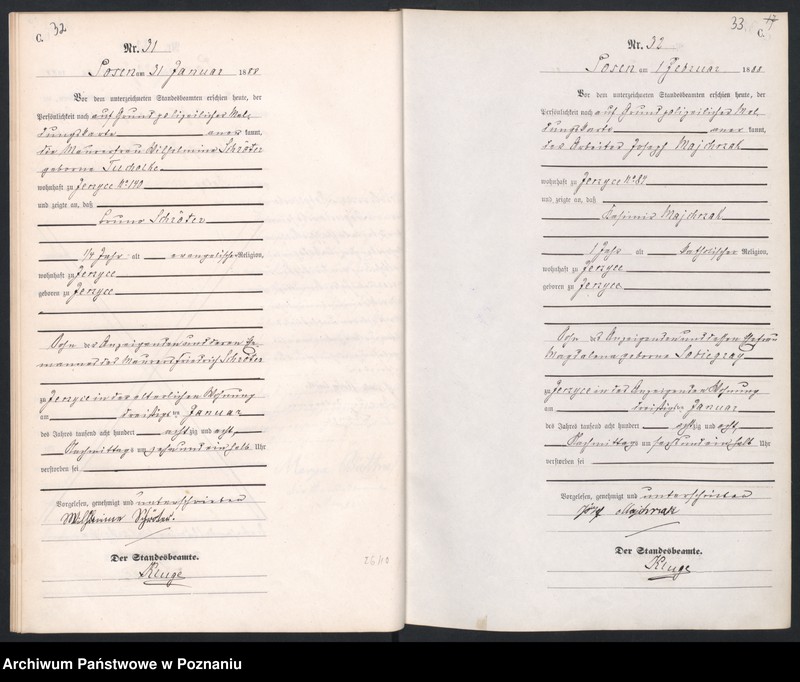 C. 32
Nr. 31
Posen am 31 Januar 1888
Vor dem unterzeichneten Standesbeamten erschien heute, der
Persönlichkeit nach auf Grund polizeilicher Mel-
dungskarte aner kannt,
die Maurerfrau Wilhelmine Schröter
geborne Tucholke
wohnhaft zu Jerzyce No 140
und zeigte an, daß
Bruno Schröter
1/4 Jahr alt evangelischer Religion,
wohnhaft zu Jerzyce
geboren zu Jerzyce
Sohn der Anzeigenden und deren Ehe-
mannes des Maurers Friedrich Schröter
zu Jerzyce in der elterlichen Wohnung
am dreißigsten Januar
des Jahres tausend acht hundert achtzig und acht,
Nachmittags um zehn und ein halb Uhr
verstorben sei
Vorgelesen, genehmigt und unterschrieben
Wilhelmine Schröter.
Der Standesbeamte.
Kluge
26/12
33 17
C.
Nr. 32
Posen am 1 Februar 1888
Vor dem unterzeichneten Standesbeamten erschien heute, der
Persönlichkeit nach auf Grund polizeilicher Mel-
dungskarte aner kannt,
der Arbeiter Joseph Majchrzak
wohnhaft zu Jerzyce No 84
und zeigte an, daß
Kasimir Majchrzak
1 Jahr alt katholischer Religion,
wohnhaft zu Jerzyce
geboren zu Jerzyce
Sohn des Anzeigenden und dessen Ehefrau
Magdalena geborne
zu Jerzyce in des Anzeigenden Wohnung
am dreißigsten Januar
des Jahres tausend acht hundert achtzig und acht,
Nachmittags um sechs und ein halb Uhr
verstorben sei
Vorgelesen, genehmigt und unterschrieben
Józef Majchrzak
Der Standesbeamte.
Kluge
Archiwum Państwowe w Poznaniu